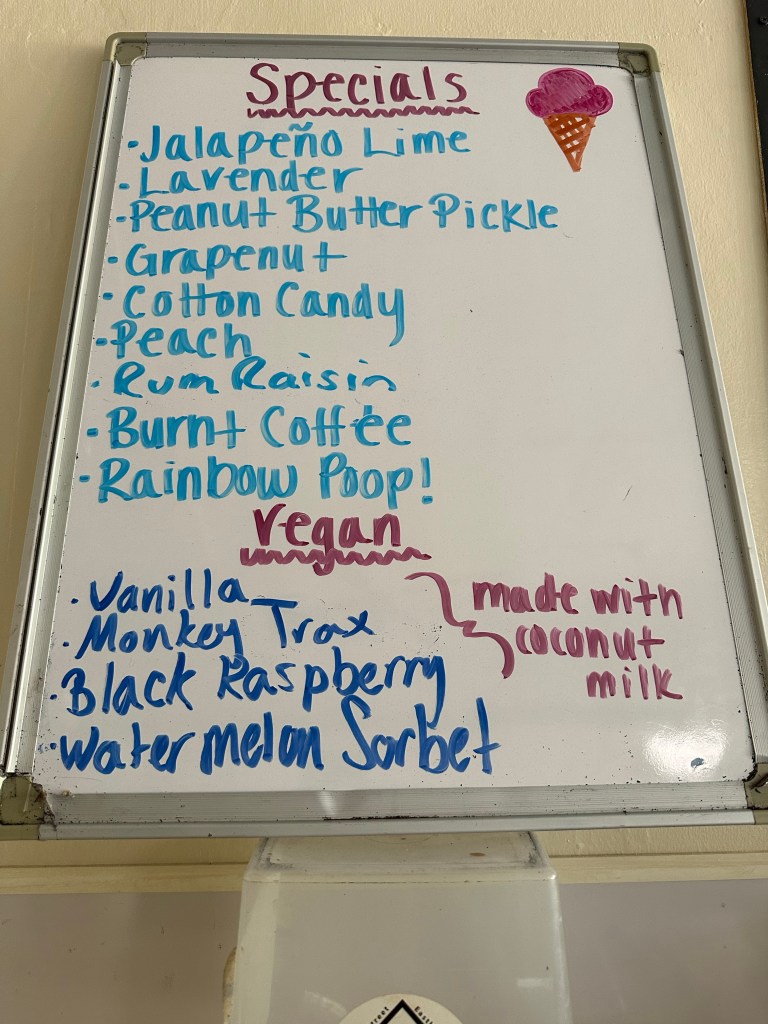 Specials
· Jalapeño Lime
· Lavender
· Peanut Butter Pickle
· Grapenut
· Cotton Candy
· Peach
· Rum Raisin
· Burnt Coffee
· Rainbow Poop!
Vegan
· Vanilla
· Monkey Trax
· Black Raspberry
made with
coconut
milk
· Watermelon Sorbet